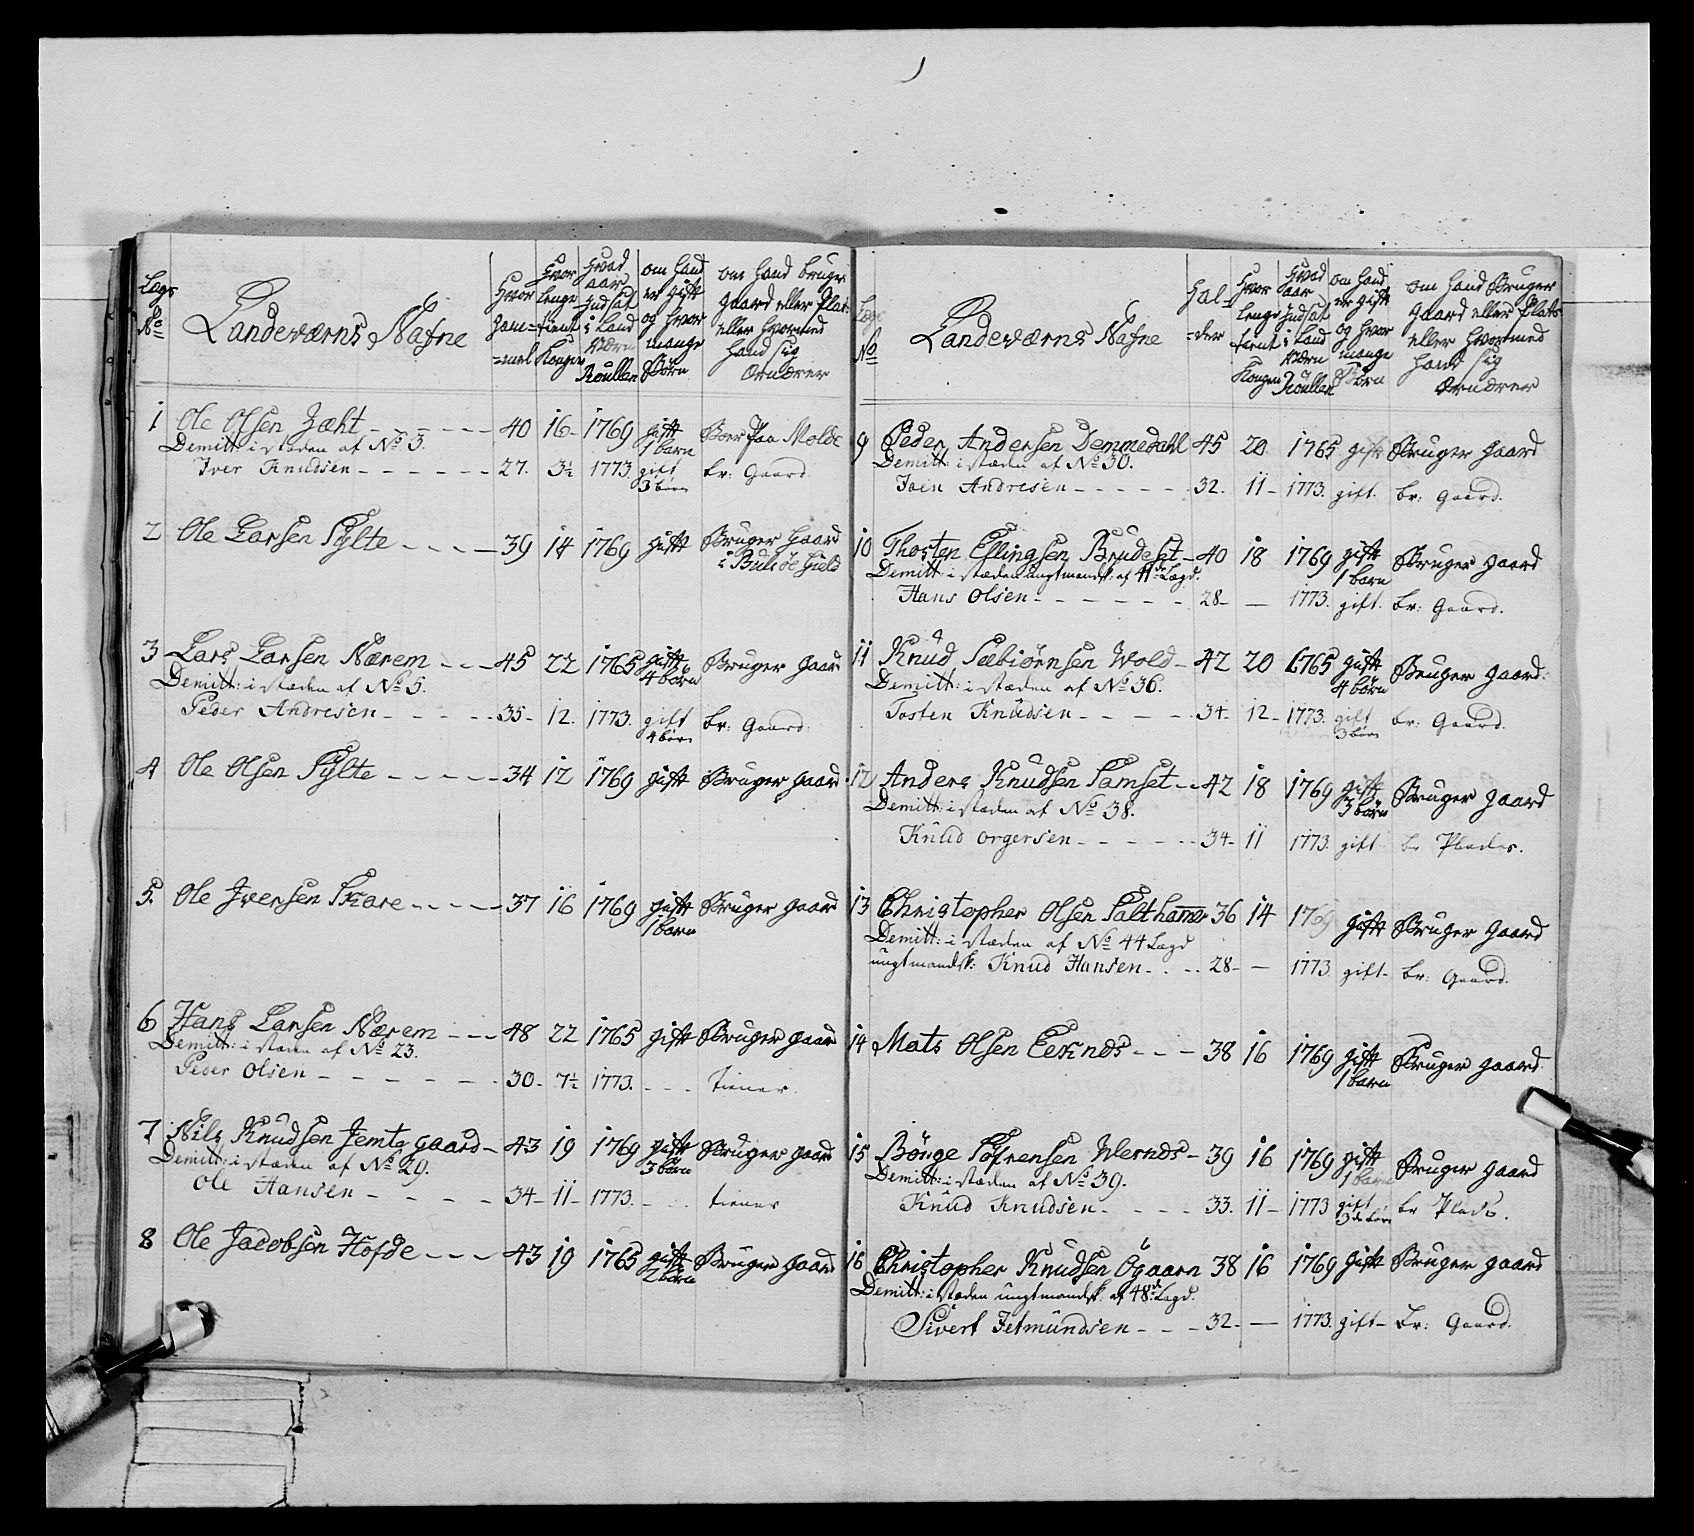 Lægs No
Landeværns Nafne
Hvor gam=mel
Hvor lenge tient Kongen
Hvad aar Indsat i Land Værn Roullen
om hand er gift og hvor mange Børn
om hand bruger gaard eller Plads eller hvormed hand sig Ærnærer
1 Ole Olsen - - - 40 16 1769 gift 1 barn Boer paa Molde
Demitt: i stæden af No 3.
Iver Knudsen - - - 27. 3½ 1773 gift 3 børn br: Gaard
2 Ole Larsen Sylte - - - 39 14 1769 gift Bruger Gaard i Bulsøe Gield
3 Lars Larsen Nærem - - - 45 22 1765 gift 4 børn Bruger gaard
Demitt: i stæden af No 5.
Peder Andresen - - - 35 - 12. 1773. gift 4 børn br: Gaard.
4 Ole Olsen Sylte - - - 34 12 1769 gift Bruger gaard
5. Ole Iversen Skare - - - 37 16 1769 gift 1 barn Bruger gaard
6 Hans Larsen Nærem - - - 48 22 1765 gift Bruger gaard
Demitt: i stæden af No 23.
Peder Olsen - - - 30 - 7½ 1773. - - - tiener.
7 Nils Knudsen Jemtegaard - 43 19 1769 gift 3 børn Bruger gaard
Demitt: i stæden af No 29.
Ole Hansen - - - 34 - 11 - 1773. - - - tiener
8 Ole Jacobsen Hofde - - - 43 19 1765 gift 2 børn Bruger gaard
Lægs No
Landeværns Nafne
Hal=der
Hvor lenge tient Kongen
Hvad aar Indsat i Land Værn Roullen
om hand er gift og hvor mange Børn
om hand Bruger gaard eller Plads eller hvormed hand sig Ærnærer
9 Peder Andersen Demmedahl 45 20 1765 gift Bruger gaard
Demitt: i stæden af No 30.
Joen Andresen - - - 32. 11 - 1773. gift. br: Gaard.
10 Thosten Ellingsen Brudeset - 40 18 1769 gift 1 barn Bruger gaard
Demitt: i stæden ungtmandsk: af 41de Lægd.
Hans Olsen - - - 28 - — 1773. gift. br: Gaard.
11 Knud Sæbiørnsen Wold - 42 20 1765 gift 4 børn Bruger gaard
Demitt: i stæden af No 36.
Tosten Knudsen - - - 34 - 12 - 1773. gift 3 børn br: Gaard.
12 Anders Knudsen Samset - - 42 18 1769 gift 3 børn Bruger gaard
Demitt: i stæden af No 38.
Knud orgersen - - - 34 - 11 1773. gift br Plades.
13 Christopher Olsen Salthamer 36 14 1769 gift Bruger gaard
Demitt: i stæden af No 44 Lægd
ungtmandsk: Knud Hansen - - - 28 - — 1773 gift - br: Gaard.
14 Mats Olsen - - - 38 16 1769 gift 1 barn Bruger gaard
15 Børge Sofrensen - 39 16 1769 gift 1 barn Bruger gaard
Demitt: i stæden af No 39.
Knud Knudsen - - - 33. 11 - 1773 gift 3de børn br Plads.
16 Christopher Knudsen Ögaarn 38 16 1769 gift Bruger gaard
Demitt: i stæden ungtmandsk: af 48de Lægd.
Sivert Jetmundsen - - - 32 - — 1773. gift - br: Gaard.